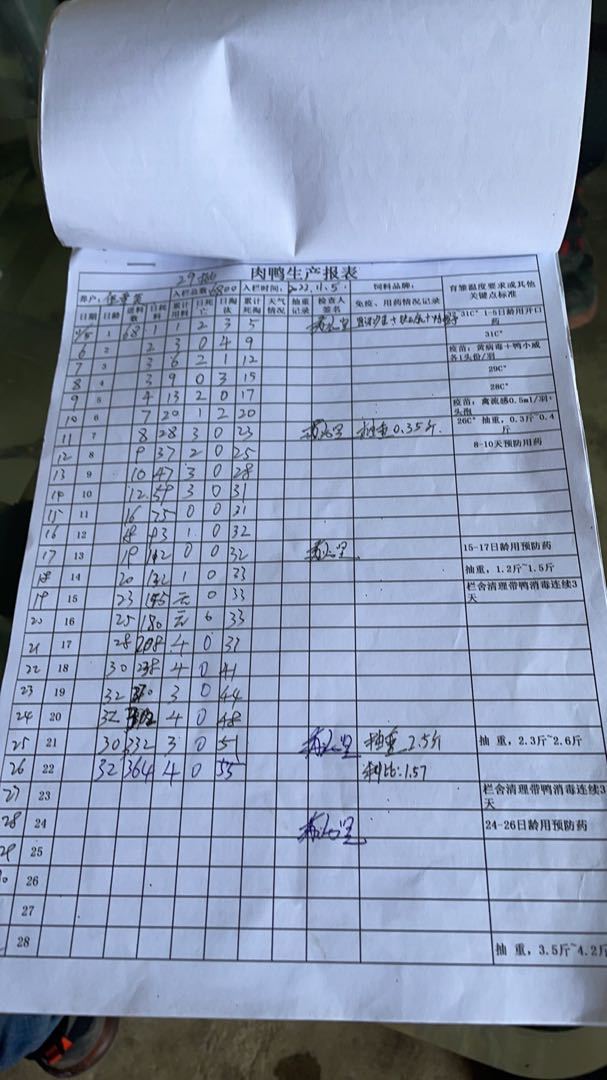 肉鸭生产报表
养户: 入栏总数: 6800 入栏时间: 2022.11.5 饲料品牌: 育雏温度要求或其他关键点标准
日期 日龄 进料数 日耗料 累计用料 日死亡 日淘汰 累计死淘 天气情况 抽重记录 检查人签名 免疫、用药情况记录
11/5 1 68 1 1 2 3 5 31C° 1-5日龄用开口药
6 2 2 3 0 4 9 31C°
7 3 3 6 2 1 12 疫苗:黄病毒+鸭小威各1头份/羽
8 4 3 9 0 3 15 29C°
9 5 4 13 2 0 17 28C°
10 6 7 20 1 2 20 疫苗,禽流感0.5ml/羽·头孢
11 7 8 28 3 0 23 抽重0.35斤 26C° 抽重,0.3斤~0.4斤
12 8 9 37 2 0 25 8-10天预防用药
13 9 10 47 3 0 28
14 10 12 59 3 0 31
15 11 16 75 0 0 31
16 12 18 93 1 0 32
17 13 19 112 0 0 32 15-17日龄用预防药
18 14 20 132 1 0 33 抽重,1.2斤~1.5斤
19 15 23 155 无 0 33 栏舍清理带鸭消毒连续3天
20 16 25 180 无 0 33
21 17 28 208 4 0 37
22 18 30 238 4 0 41
23 19 32 3 0 44
24 20 32 302 4 0 48
25 21 30 332 3 0 51 抽重 2.5斤 抽重,2.3斤~2.6斤
26 22 32 364 4 0 55 料比:1.57
27 23 栏舍清理带鸭消毒连续3天
28 24 24-26日龄用预防药
29 25
26
27
28 抽重,3.5斤~4.2斤